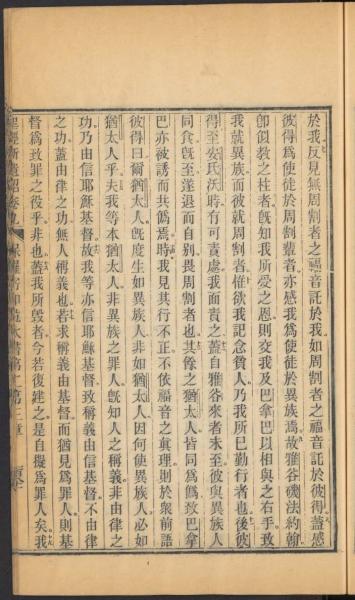 於我反見無周割者之福音託於我如周割者之福音託於彼得蓋感
彼得爲使徒於周割輩者亦感我爲使徒於異族焉故雅谷磯法約翰
卽似教之柱者旣知我所受之恩則交我及巴拿巴以相與之右手致
我就異族而彼就周割者惟欲我記念貧人乃我所已勤行者也後彼
得至安氏沃時有可責處我面責之蓋自雅谷來者未至彼與異族人
同食旣至遂退而自別畏周割者也其餘之猶太人皆同爲僞致巴拿
巴亦被誘而共僞焉時我見其行不正不依福音之眞理則於衆前語
彼得曰爾猶太人旣度生如異族人非如猶太人因何使異族人必如
猶太人乎夫我等本猶太人非異族之罪人旣知人之稱義非由律之
功乃由信耶穌基督故我等亦信耶穌基督致稱義由信基督不由律
之功蓋由律之功無人稱義也若求稱義由基督而猶見爲罪人則基
督爲致罪之役乎非也蓋我所毀者今若復建之是自擬爲罪人矣我